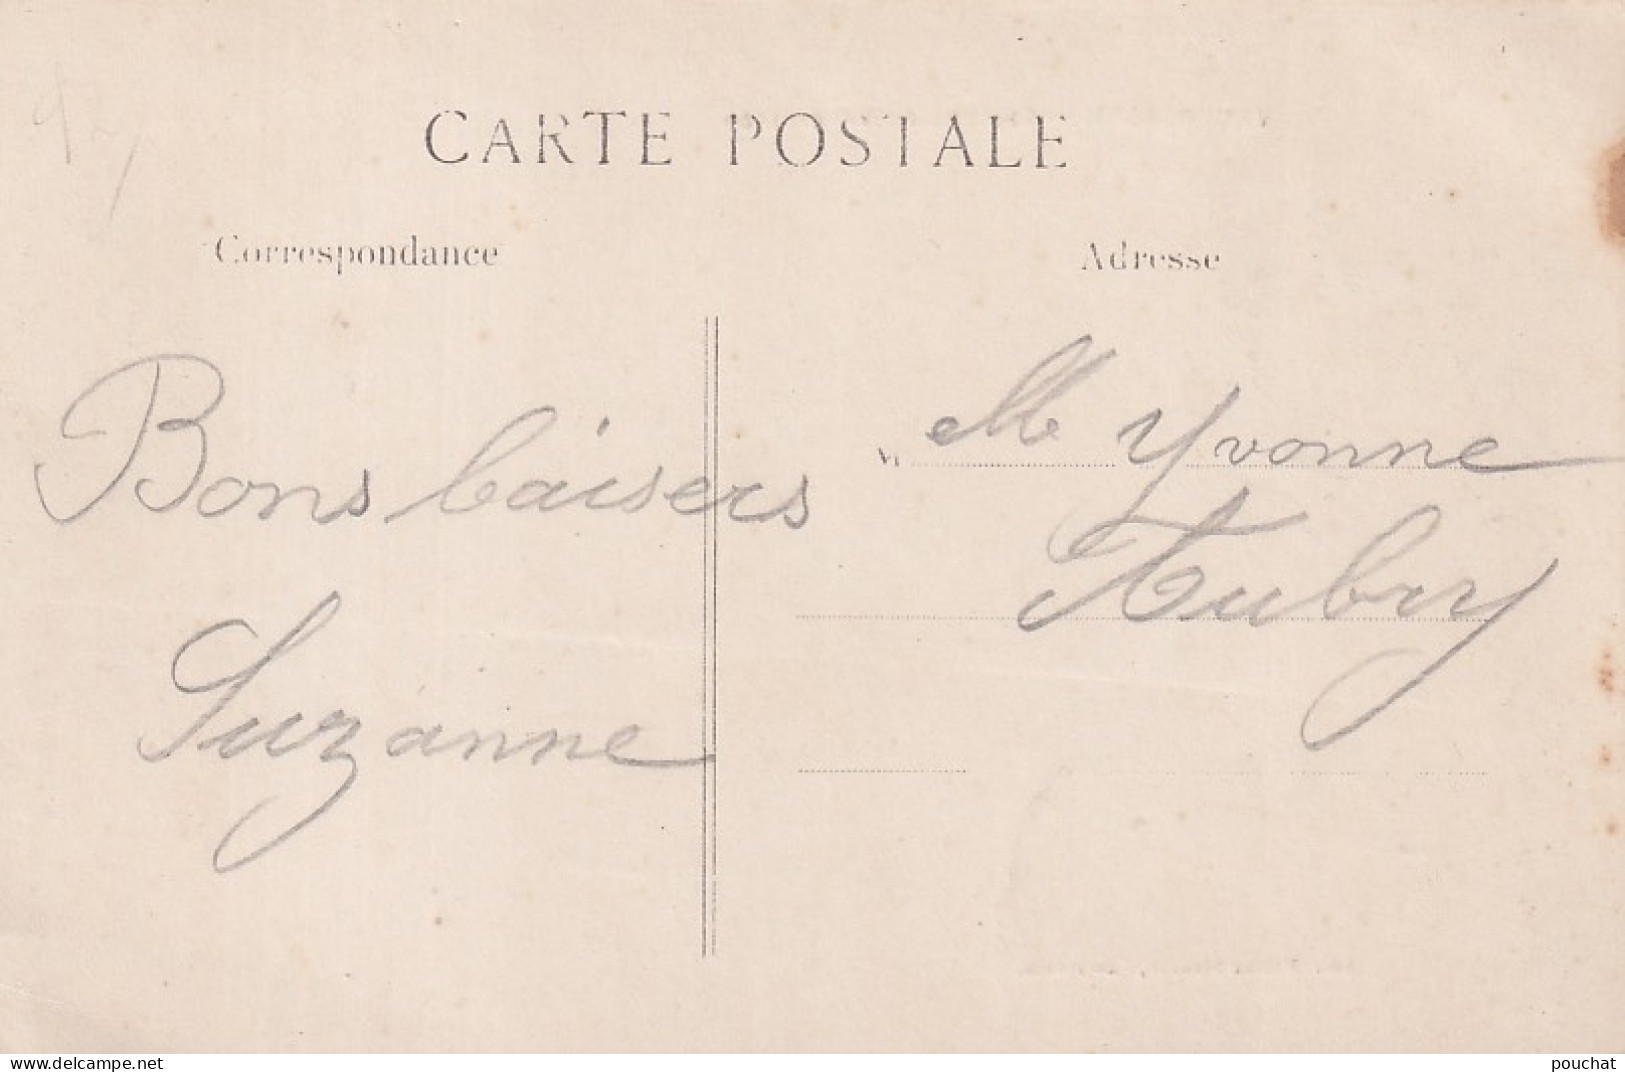 CARTE POSTALE
Correspondance
Adresse
Bons baisers
Suzanne
M
Mle Yvonne
Aubry
delcampe.net
pouchat